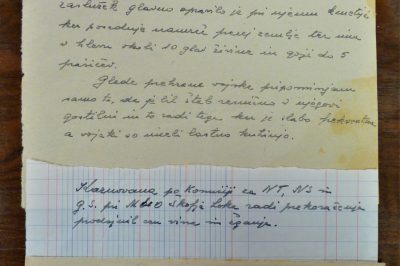 zaslužek glavno opravilo je pri njemu kmetija
ker poseduje namreč precej zemlje ter ima
v hlevu okoli 10 glav živine in goji do 5
prašičev.
Glede prehrane vojske pripominjam
samo to, da je bil štab resnično v njegovi
gostilni in to radi tega ker je slabo
a vojaki so imeli lastno kuhinjo.
Kaznovana po komisiji za NT, NS in
g.S. pri MLO Škofja Loka radi prekoračenja
prodajnih cen vina in žganja.